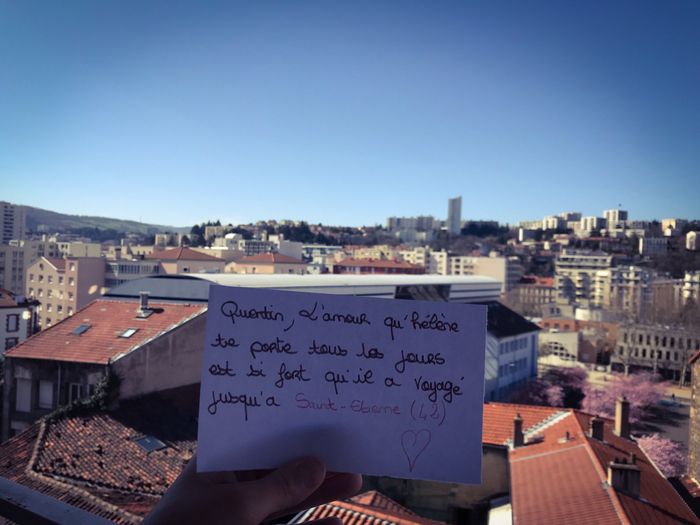 Quentin, L'amour qu'hélène
te porte tous les jours
est si fort qu'il a voyagé
jusqu'a Saint-Etienne (42)